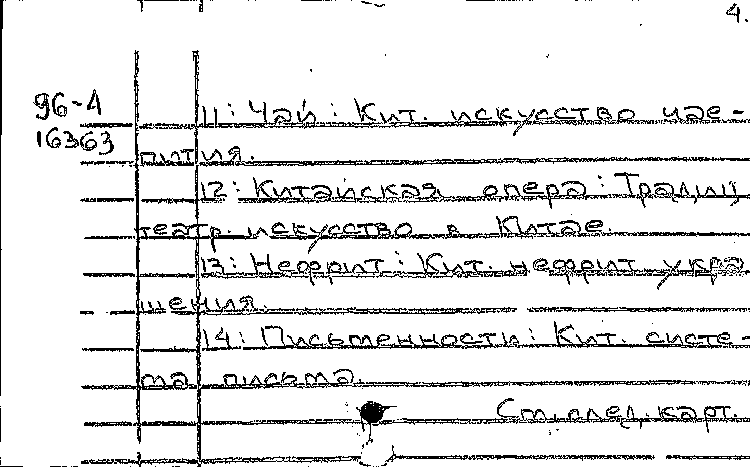 4.
96-4
16363
11: Чай: Кит. искусство чае-
пития.
12: Китайская опера: Традиц.
театр. искусство в Китае.
13: Нефрит: Кит. нефрит укра
шения.
14: Письменности: Кит. систе-
ма письма.
См. след. карт.